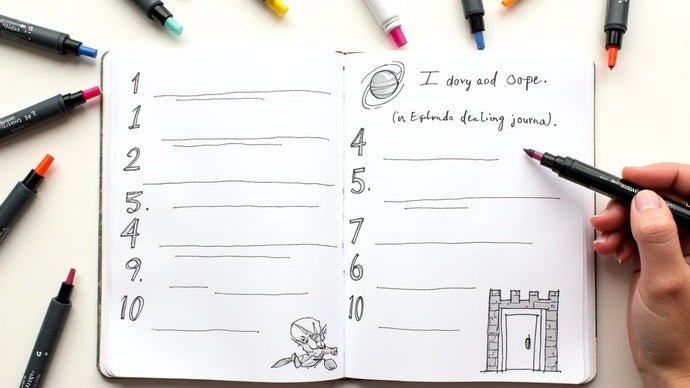 1
1
2
5.
4
9.
10
I dory and Oope.
(in Ephrnds dealing journal).
4
5.
7
6
10